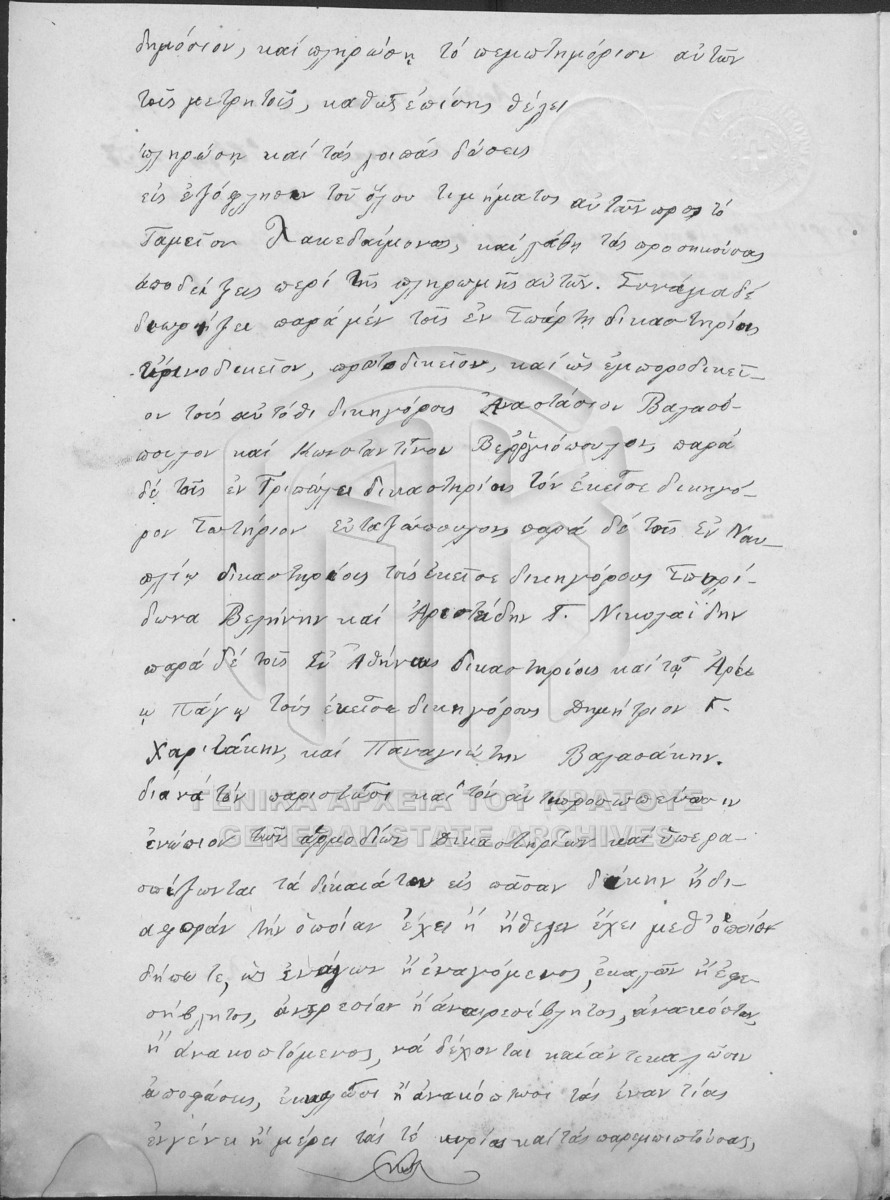 δημόσιον, καί πληρώση τό πεμπτημόριον αὐτῶν
τοῖς μετρητοῖς, καθώς ἐπίσης θέλει
πληρώση καί τάς λοιπάς δόσεις
εἰς ἐξόφλησιν τοῦ ὅλου τιμήματος αὐτῶν προς τό
Ταμεῖον Λακεδαίμονος, καί λάβη τάς προσηκούσας
ἀποδείξεις περί τῆς πληρωμῆς αὐτῶν. Συνάμα δέ
διωρίζει παρά μέν τοῖς ἐν Σπάρτῃ δικαστηρίοις
εἰρηνοδικεῖον, πρωτοδικεῖον, καί ὡς ἐμποροδικεῖ-
ον τούς αὐτόθι δικηγόρους Ἀναστάσιον Βαλασό-
πουλον καί Κωνσταντῖνον παρά
δέ τοῖς ἐν Τριπόλει δικαστηρίοις τόν ἐκεῖσε δικηγό-
ρον Σωτήριον Εὐταξιόπουλον, παρά δέ τοῖς ἐν Ναυ-
πλίῳ δικαστηρίοις τούς ἐκεῖσε δικηγόρους Σπυρί-
δωνα Βελήνην καί Ἀριστείδην Γ. Νικολαΐδην
παρά δέ τοῖς ἐν Ἀθήναις δικαστηρίοις καί τῷ Ἀρεί
ῳ Πάγῳ τούς ἐκεῖσε δικηγόρους Δημήτριον Γ.
Χαριτάκην, καί Παναγιώτην Βαλασάκην.
διά νά τόν παριστῶσι καί τόν ἀντιπροσωπεύωσιν
ἐνώπιον τῶν ἁρμοδίων Δικαστηρίων καί ὑπερα-
σπίζωνται τά δίκαιά του εἰς πᾶσαν δίκην ἤ δι-
αφοράν τήν ὁποίαν ἔχει ἤ ἤθελεν ἔχει μεθ' ὁποίου
δήποτε, ὡς ἐνάγων ἤ ἐναγόμενος, ἐκκαλῶν ἤ ἐφε-
σίβλητος, ἀναιρεσίων ἤ ἀναιρεσίβλητος, ἀνακόπτων,
ἤ ἀνακοπτόμενος, νά δέχονται καί ἀντεκκαλῶσιν
ἀποφάσεις, ἐκκαλῶσι ἤ ἀνακόπτωσι τάς ἐναντίας
ἐν γένει ἤ μέρει τάς τε κυρίας καί τάς παρεμπιπτούσας,
ΓΕΝΙΚΑ ΑΡΧΕΙΑ ΤΟΥ ΚΡΑΤΟΥΣ
GENERAL STATE ARCHIVES